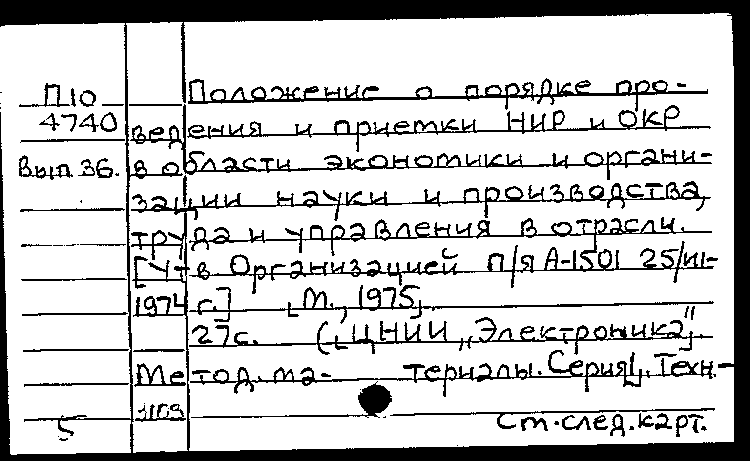 П10 Положение о порядке про-
4740 ведения и приемки НИР и ОКР
Вып.36. в области экономики и органи-
зации науки и производства,
труда и управления в отрасли.
[Утв Организацией п/я А-1501 25/III-
1974 г.] [М., 1975].
27с. ([ЦНИИ „Электроника"].
Метод. ма- териалы. Серия[.] Техн.-
5 Ст.след.карт.